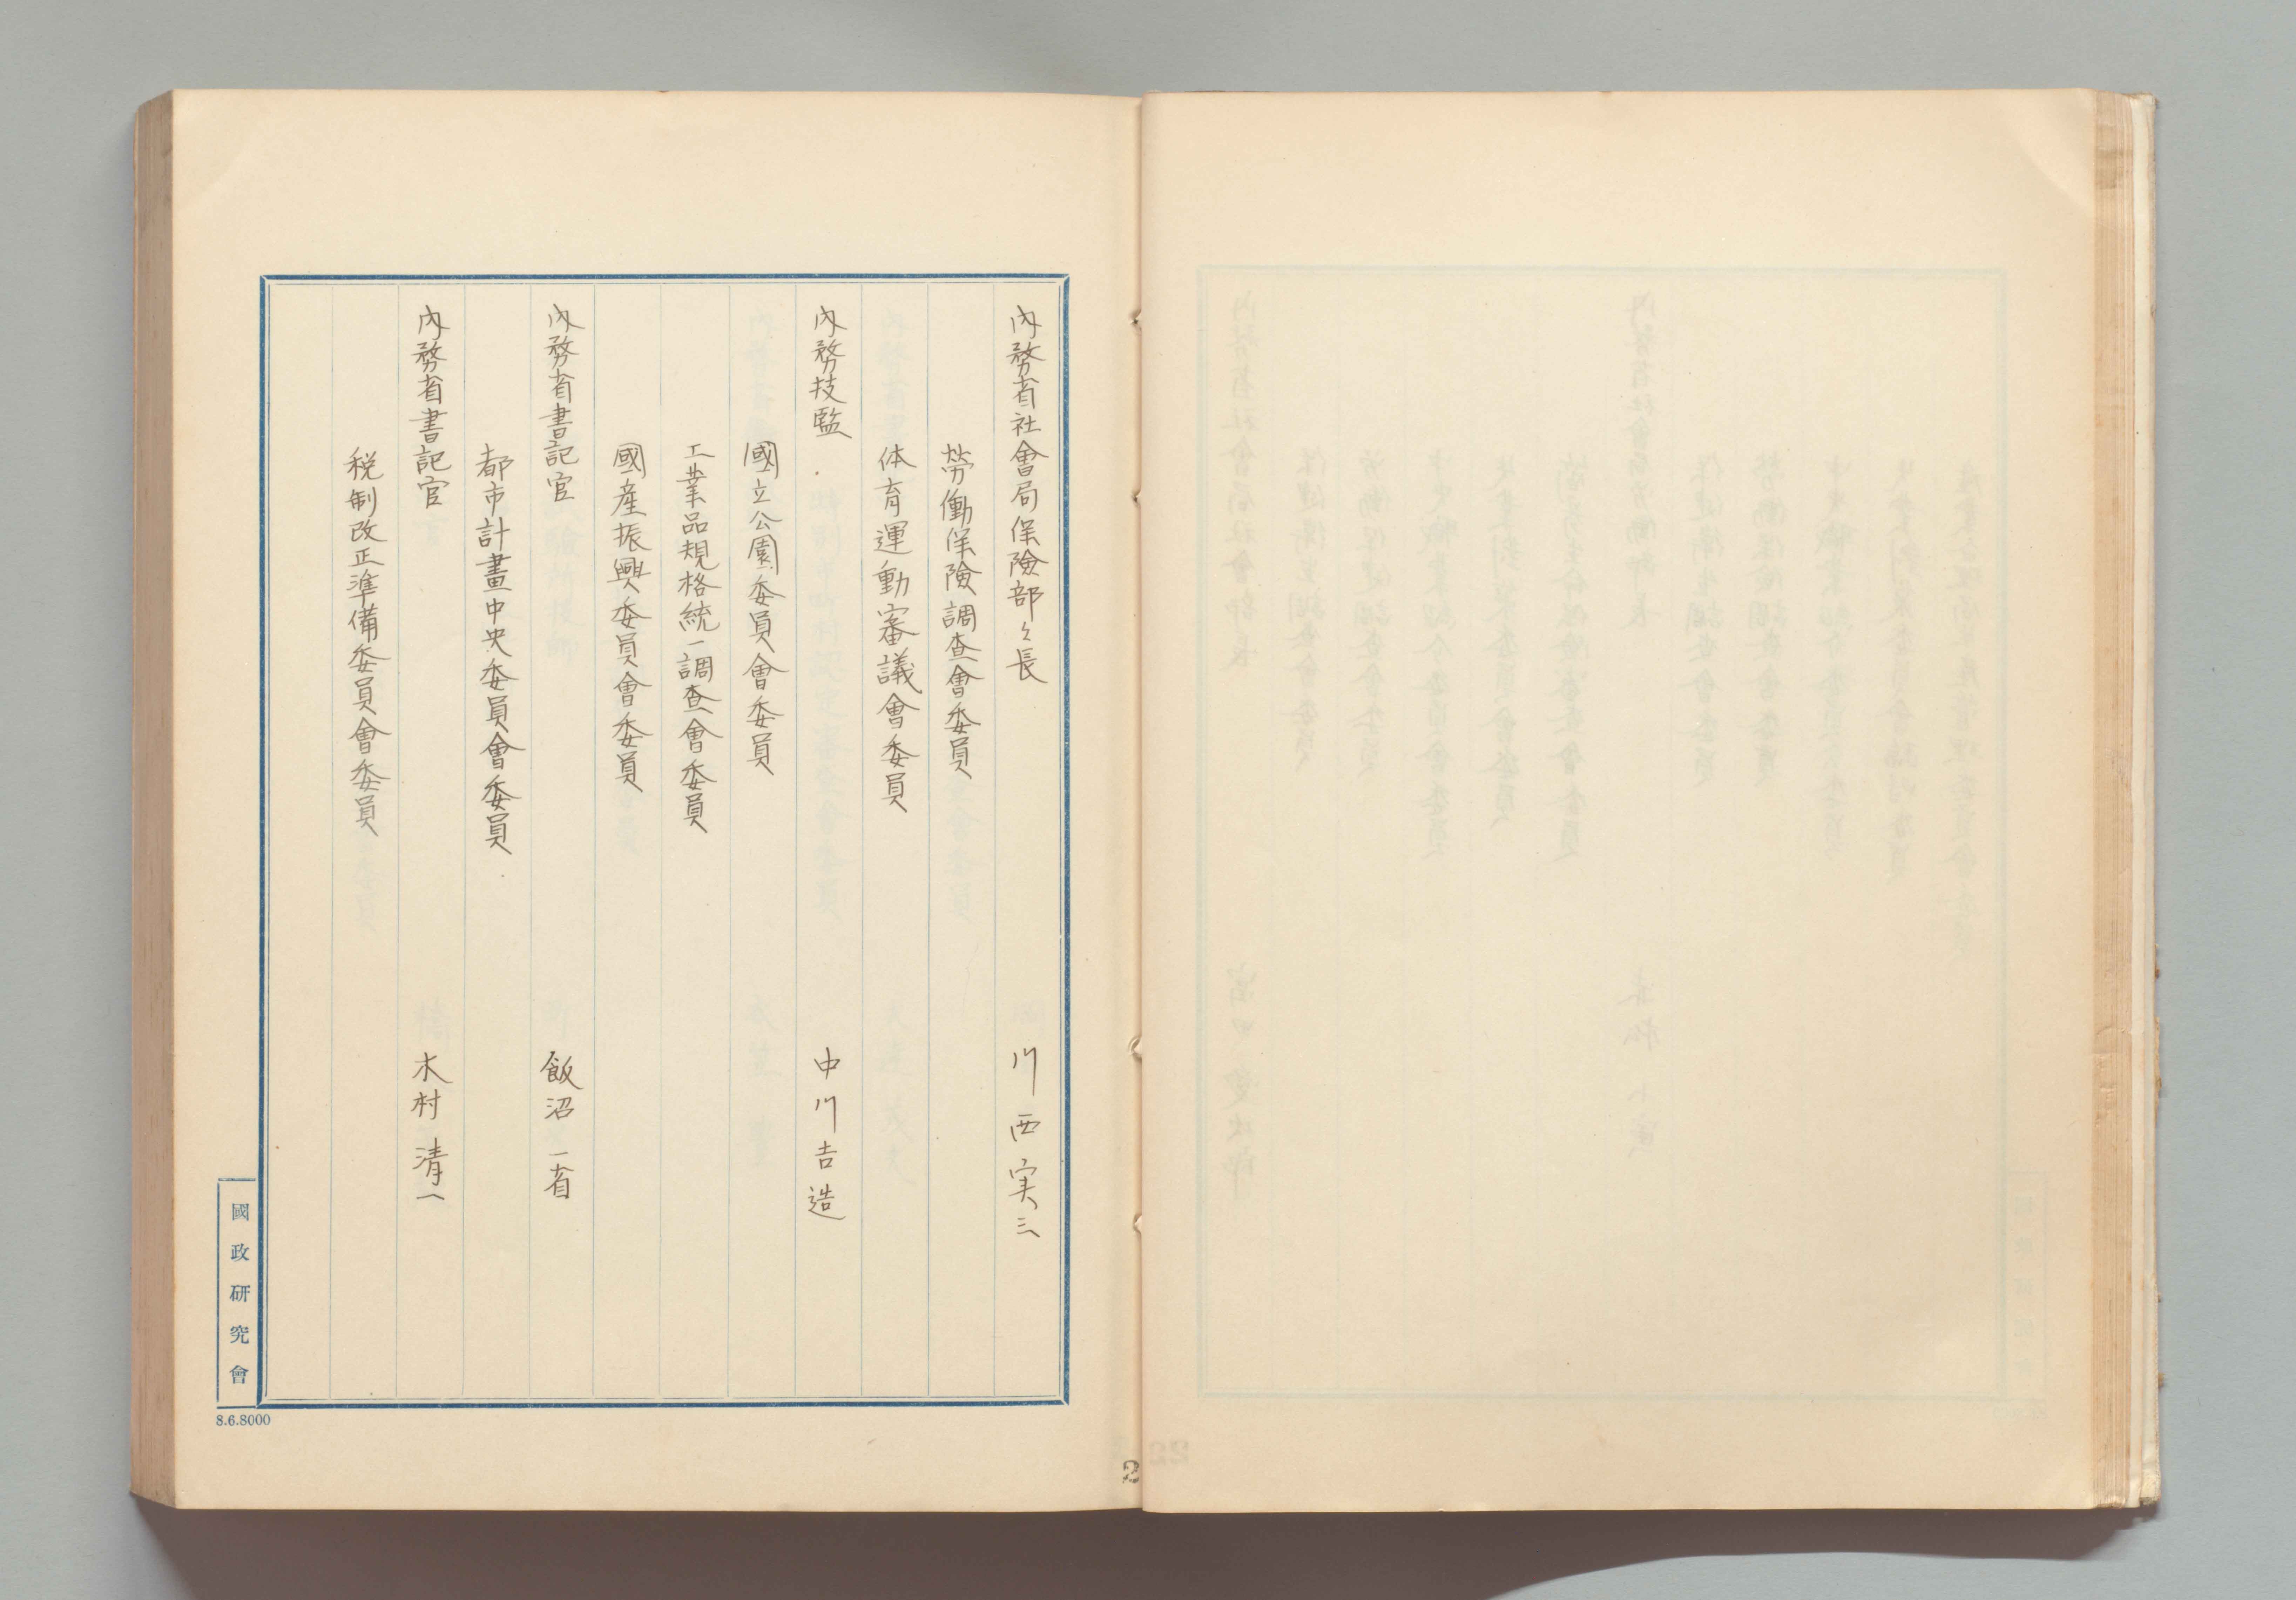 内務省社會局保險部々長 川西実三
勞働保險調查會委員
体育運動審議會委員
内務技監 中川吉造
國立公園委員會委員
工業品規格統一調查會委員
國產振興委員會委員
内務省書記官 飯沼一省
都市計畫中央委員會委員
内務省書記官 木村清一
税制改正準備委員會委員
國政研究會
8.6.8000
2